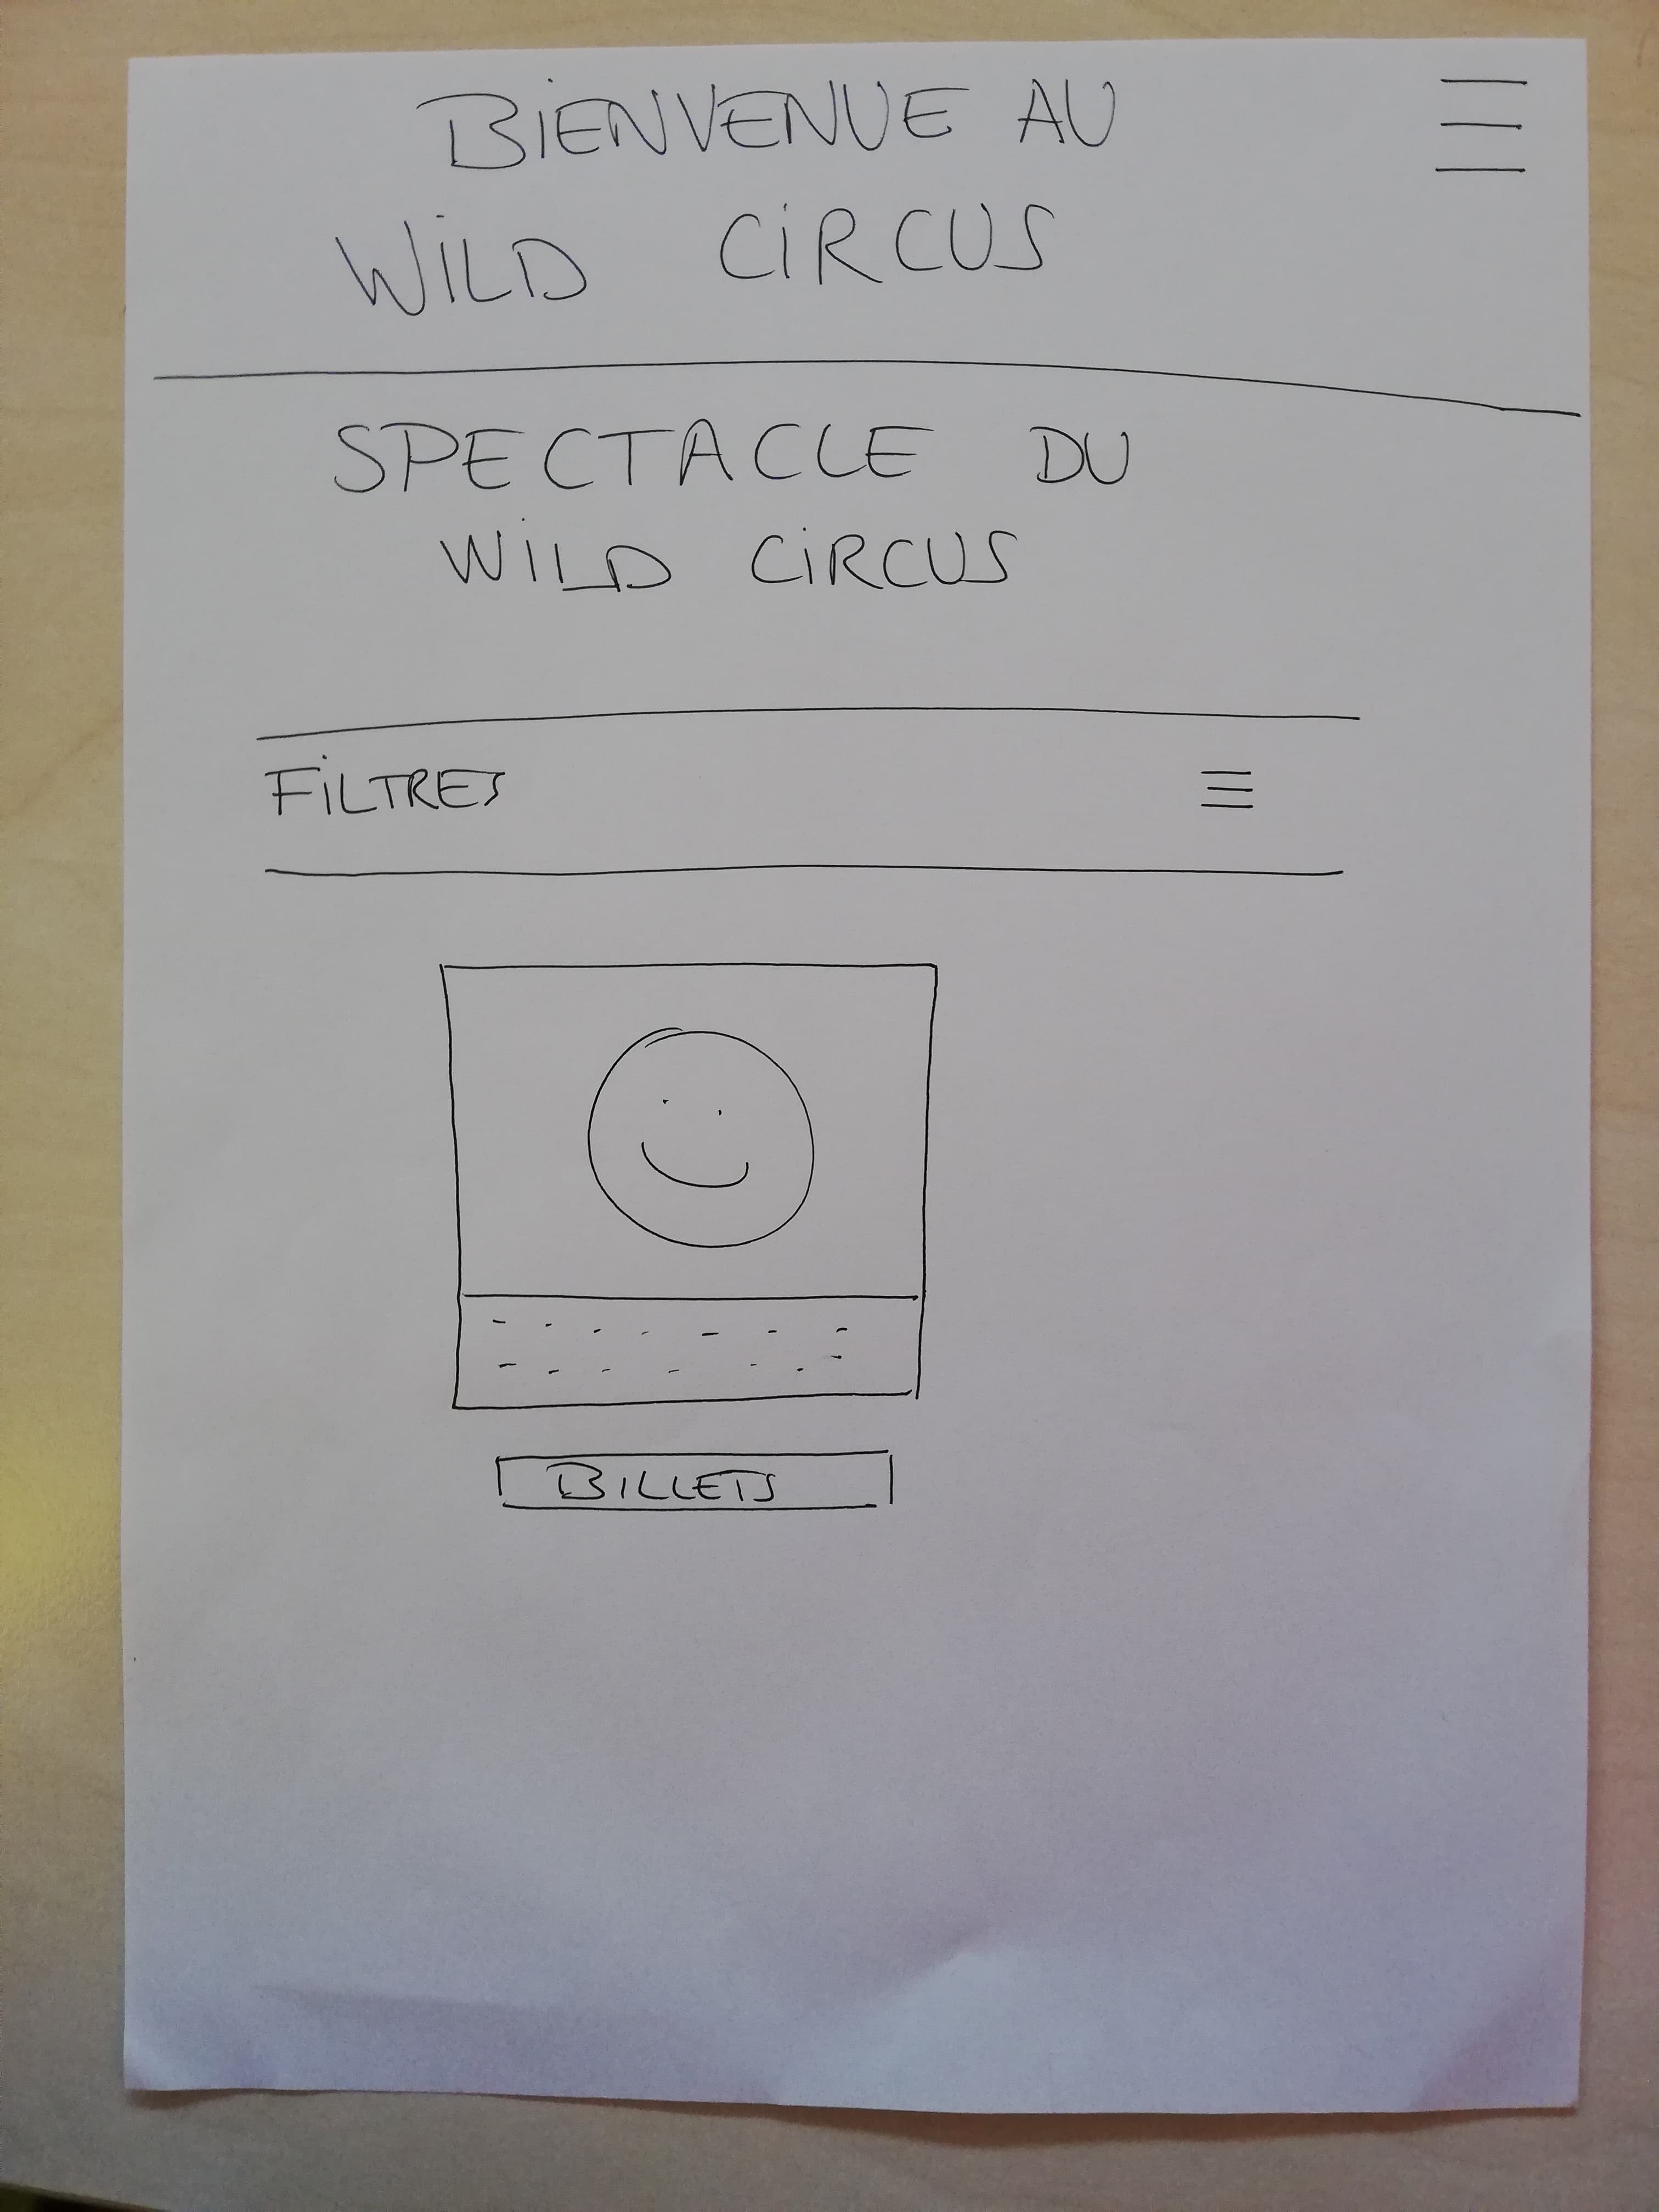 BIENVENUE AU
WILD CIRCUS
SPECTACLE DU
WILD CIRCUS
FILTRES
BILLETS